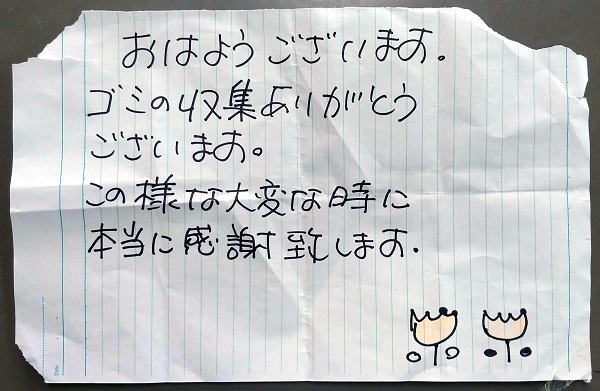 おはようございます。
ゴミの収集ありがとう
ございます。
この様な大変な時に
本当に感謝致します.